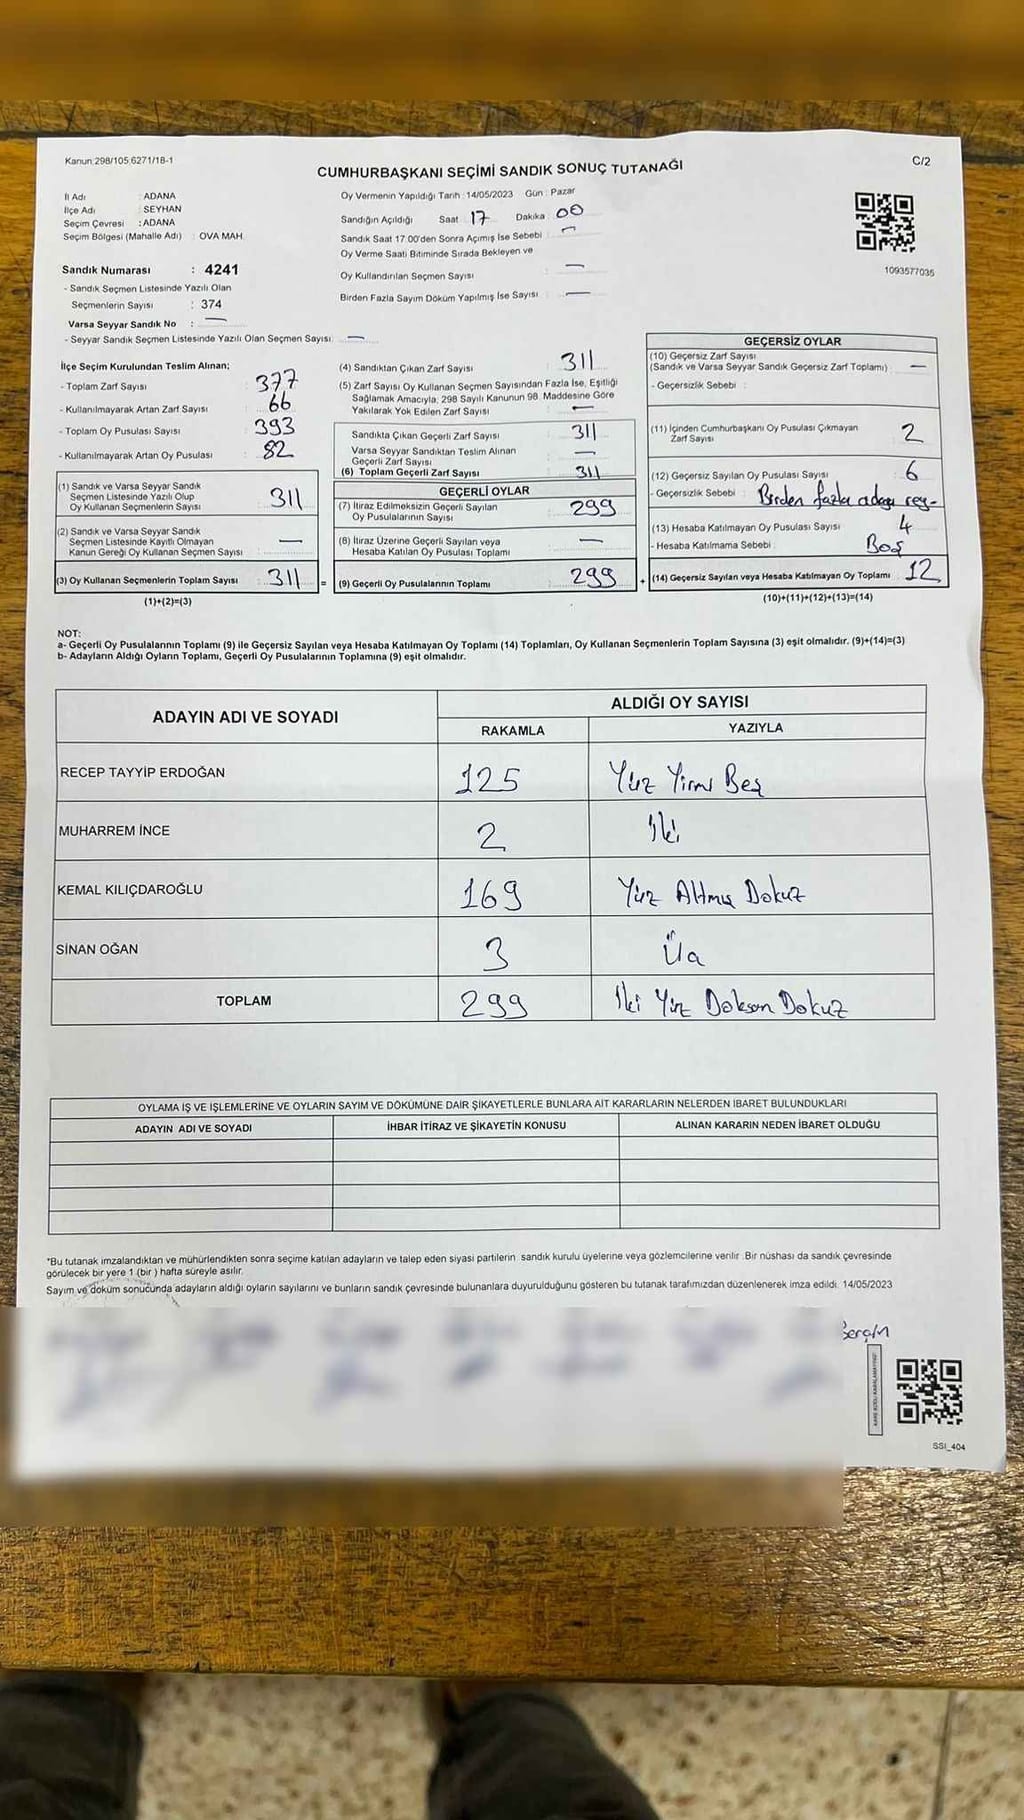 Kanun:298/105,6271/18-1
C/2
CUMHURBAŞKANI SEÇİMİ SANDIK SONUÇ TUTANAĞI
İl Adı : ADANA
İlçe Adı : SEYHAN
Seçim Çevresi : ADANA
Seçim Bölgesi (Mahalle Adı) : OVA MAH.
Oy Vermenin Yapıldığı Tarih : 14/05/2023 Gün : Pazar
Sandığın Açıldığı Saat 17 Dakika 00
Sandık Saat 17.00'den Sonra Açımış İse Sebebi : —
Oy Verme Saati Bitiminde Sırada Bekleyen ve
Oy Kullandırılan Seçmen Sayısı : —
Birden Fazla Sayım Döküm Yapılmış İse Sayısı : —
1093577035
Sandık Numarası : 4241
- Sandık Seçmen Listesinde Yazılı Olan
Seçmenlerin Sayısı : 374
Varsa Seyyar Sandık No : —
- Seyyar Sandık Seçmen Listesinde Yazılı Olan Seçmen Sayısı: —
İlçe Seçim Kurulundan Teslim Alınan;
- Toplam Zarf Sayısı : 377
- Kullanılmayarak Artan Zarf Sayısı : 66
- Toplam Oy Pusulası Sayısı : 393
- Kullanılmayarak Artan Oy Pusulası : 82
(1) Sandık ve Varsa Seyyar Sandık
Seçmen Listesinde Yazılı Olup
Oy Kullanan Seçmenlerin Sayısı : 311
(2) Sandık ve Varsa Seyyar Sandık
Seçmen Listesinde Kayıtlı Olmayan
Kanun Gereği Oy Kullanan Seçmen Sayısı : —
(3) Oy Kullanan Seçmenlerin Toplam Sayısı : 311 =
(1)+(2)=(3)
(4) Sandıktan Çıkan Zarf Sayısı : 311
(5) Zarf Sayısı Oy Kullanan Seçmen Sayısından Fazla İse, Eşitliği
Sağlamak Amacıyla; 298 Sayılı Kanunun 98. Maddesine Göre
Yakılarak Yok Edilen Zarf Sayısı : —
Sandıkta Çıkan Geçerli Zarf Sayısı : 311
Varsa Seyyar Sandıktan Teslim Alınan
Geçerli Zarf Sayısı : —
(6) Toplam Geçerli Zarf Sayısı : 311
GEÇERLİ OYLAR
(7) İtiraz Edilmeksizin Geçerli Sayılan
Oy Pusulalarının Sayısı : 299
(8) İtiraz Üzerine Geçerli Sayılan veya
Hesaba Katılan Oy Pusulası Toplamı : —
(9) Geçerli Oy Pusulalarının Toplamı : 299 +
GEÇERSİZ OYLAR
(10) Geçersiz Zarf Sayısı
(Sandık ve Varsa Seyyar Sandık Geçersiz Zarf Toplamı) : —
- Geçersizlik Sebebi :
(11) İçinden Cumhurbaşkanı Oy Pusulası Çıkmayan
Zarf Sayısı : 2
(12) Geçersiz Sayılan Oy Pusulası Sayısı : 6
- Geçersizlik Sebebi : Birden fazla adaya rey-
(13) Hesaba Katılmayan Oy Pusulası Sayısı : 4
- Hesaba Katılmama Sebebi : Boş
(14) Geçersiz Sayılan veya Hesaba Katılmayan Oy Toplamı : 12
(10)+(11)+(12)+(13)=(14)
NOT:
a- Geçerli Oy Pusulalarının Toplamı (9) ile Geçersiz Sayılan veya Hesaba Katılmayan Oy Toplamı (14) Toplamları, Oy Kullanan Seçmenlerin Toplam Sayısına (3) eşit olmalıdır. (9)+(14)=(3)
b- Adayların Aldığı Oyların Toplamı, Geçerli Oy Pusulalarının Toplamına (9) eşit olmalıdır.
ADAYIN ADI VE SOYADI
ALDIĞI OY SAYISI
RAKAMLA YAZIYLA
RECEP TAYYİP ERDOĞAN 125 Yüz Yirmi Beş
MUHARREM İNCE 2 İki
KEMAL KILIÇDAROĞLU 169 Yüz Altmış Dokuz
SİNAN OĞAN 3 Üç
TOPLAM 299 İki Yüz Doksan Dokuz
OYLAMA İŞ VE İŞLEMLERİNE VE OYLARIN SAYIM VE DÖKÜMÜNE DAİR ŞİKAYETLERLE BUNLARA AİT KARARLARIN NELERDEN İBARET BULUNDUKLARI
ADAYIN ADI VE SOYADI İHBAR İTİRAZ VE ŞİKAYETİN KONUSU ALINAN KARARIN NEDEN İBARET OLDUĞU
*Bu tutanak imzalandıktan ve mühürlendikten sonra seçime katılan adayların ve talep eden siyasi partilerin sandık kurulu üyelerine veya gözlemcilerine verilir .Bir nüshası da sandık çevresinde
görülecek bir yere 1 (bir ) hafta süreyle asılır.
Sayım ve döküm sonucunda adayların aldığı oyların sayılarını ve bunların sandık çevresinde bulunanlara duyurulduğunu gösteren bu tutanak tarafımızdan düzenlenerek imza edildi. 14/05/2023
SSI_404